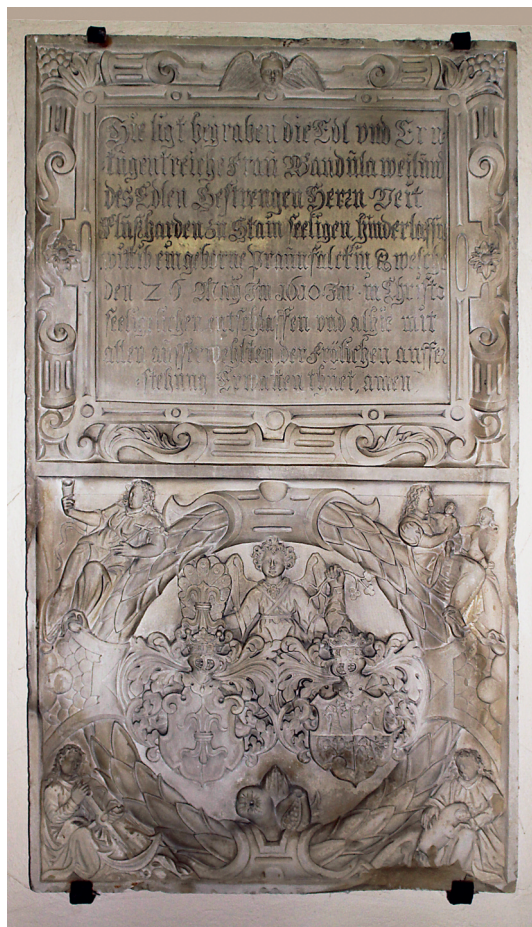 Hie ligt begraben die Edl vnd Ern
tugentreiche Frau Wandula weilund
des Edlen Gestrengen Herrn Veit
zu Stain seeligen hinderlassne
wittib ein geberne welche
den 25 May Im 1610 Jar in Christo
seeligclichen entschlaffen vnd alhie mit
allen ausserwehlten der Frölichen auffer
stehung Erwartten thuet, amen